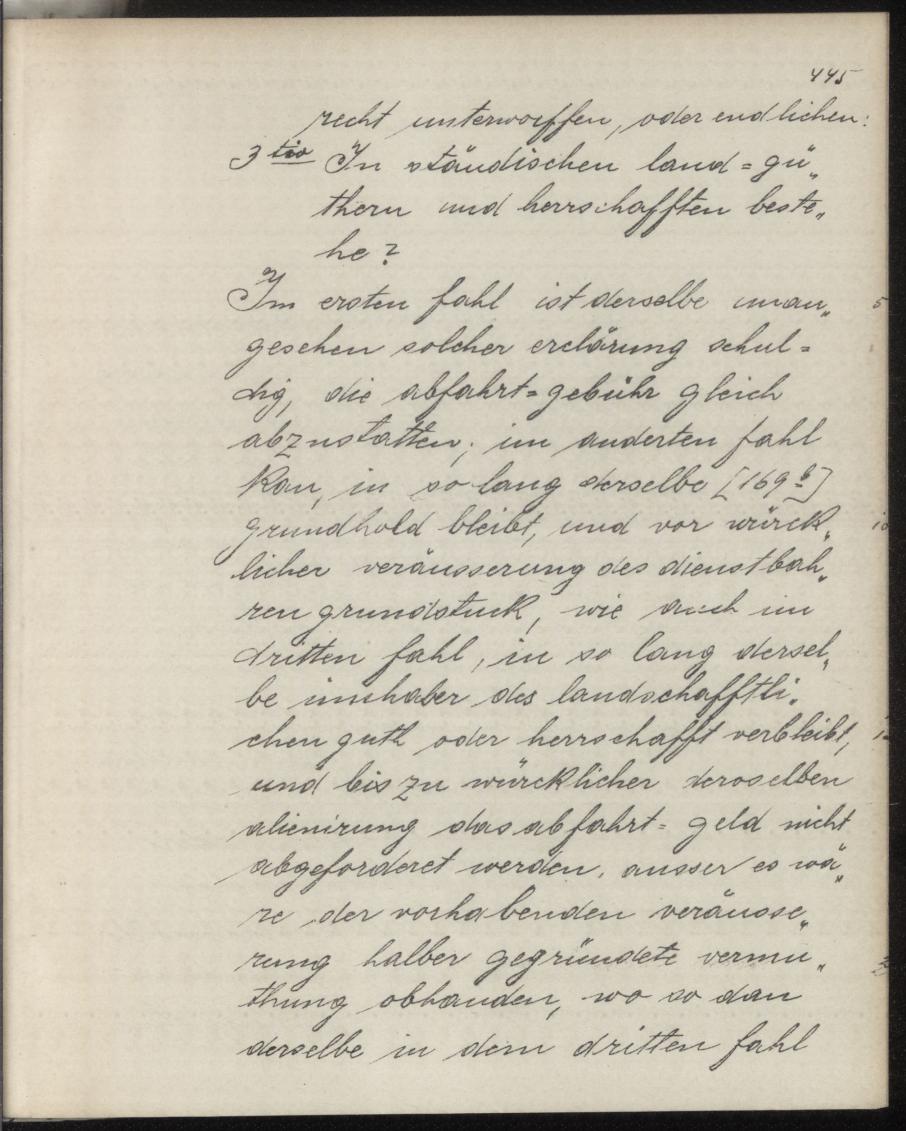 445
recht unterworffen, oder endlichen:
3 tio In ständischen land = gü„
thern und herrschafften beste„
he?
Im ersten fahl ist derselbe unan„ 5
gesehen solcher erclärung schul=
dig, die abfahrt=gebühr gleich
abzustatten; im anderten fahl
kan, in so lang derselbe [169 b]
grundhold bleibt, und vor würck„ 10
licher veräusserung des dienstbah„
ren grundstuck, wie auch im
dritten fahl, in so lang dersel„
be innhaber des landschafftli„
chen guth oder herrschafft verbleibt,
und bis zu würcklicher deroselben
alienirung das abfahrt= geld nicht
abgeforderet werden, ausser es wä„
re der vorhabenden veräusse„
rung halber gegründete vermu„
thung obhanden, wo so dan
derselbe in dem dritten fahl